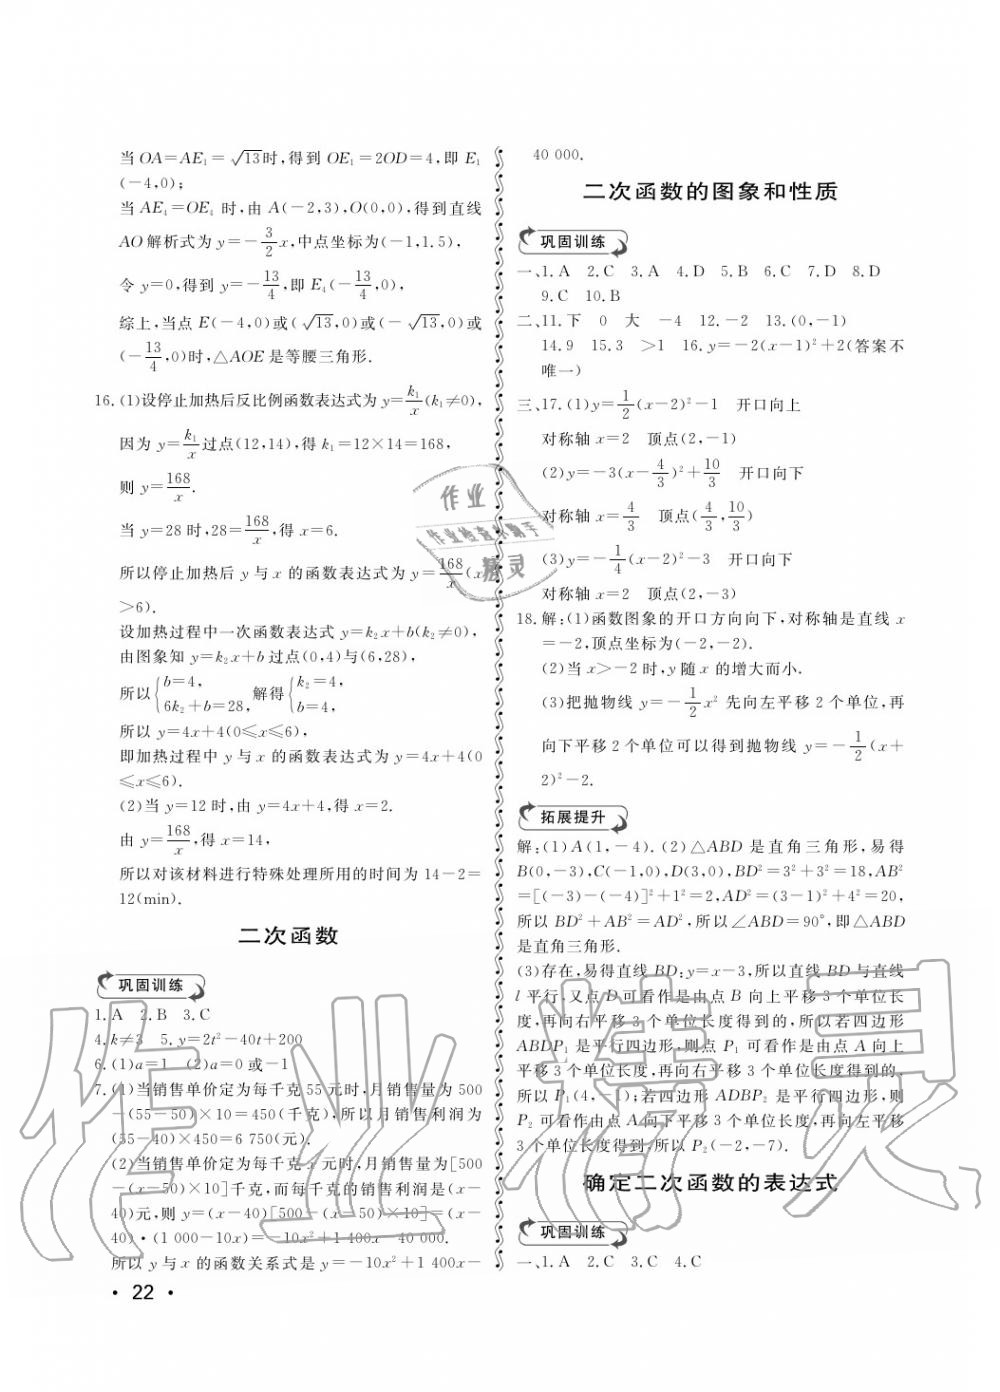 当 OA=AE₁=√13时,得到 OE₁=2OD=4,即 E₁
(-4,0);
当 AE₄=OE₄ 时,由 A(-2,3),O(0,0),得到直线
AO 解析式为 y=-3/2x,中点坐标为(-1,1.5),
令 y=0,得到 y=-13/4,即 E₄(-13/4,0),
综上,当点 E(-4,0)或(√13,0)或(-√13,0)或
(-13/4,0)时,△AOE 是等腰三角形.
16.(1)设停止加热后反比例函数表达式为 y=k₁/x(k₁≠0),
因为 y=k₁/x过点(12,14),得 k₁=12×14=168,
则 y=168/x.
当 y=28 时,28=168/x,得 x=6.
所以停止加热后 y 与 x 的函数表达式为 y=168/x(x
>6).
设加热过程中一次函数表达式 y=k₂x+b(k₂≠0),
由图象知 y=k₂x+b 过点(0,4)与(6,28),
所以{b=4, 6k₂+b=28, 解得{k₂=4, b=4,
所以 y=4x+4(0≤x≤6),
即加热过程中 y 与 x 的函数表达式为 y=4x+4(0
≤x≤6).
(2)当 y=12 时,由 y=4x+4,得 x=2.
由 y=168/x,得 x=14,
所以对该材料进行特殊处理所用的时间为 14-2=
12(min).
二次函数
巩固训练
1.A 2.B 3.C
4.k≠3 5.y=2t²-40t+200
6.(1)a=1 (2)a=0 或-1
7.(1)当销售单价定为每千克 55 元时,月销售量为 500
-(55-50)×10=450(千克),所以月销售利润为
(55-40)×450=6 750(元).
(2)当销售单价定为每千克 x 元时,月销售量为[500
-(x-50)×10]千克,而每千克的销售利润是(x-
40)元,则 y=(x-40)[500-(x-50)×10]=(x-
40)·(1 000-10x)=-10x²+1 400x-40 000.
所以 y 与 x 的函数关系式是 y=-10x²+1 400x-
· 22 ·
40 000.
二次函数的图象和性质
巩固训练
一、1.A 2.C 3.A 4.D 5.B 6.C 7.D 8.D
9.C 10.B
二、11.下 0 大 -4 12.-2 13.(0,-1)
14.9 15.3 >1 16.y=-2(x-1)²+2(答案不
唯一)
三、17.(1)y=1/2(x-2)²-1 开口向上
对称轴 x=2 顶点(2,-1)
(2)y=-3(x-4/3)²+10/3 开口向下
对称轴 x=4/3 顶点(4/3,10/3)
(3)y=-1/4(x-2)²-3 开口向下
对称轴 x=2 顶点(2,-3)
18.解:(1)函数图象的开口方向向下,对称轴是直线 x
=-2,顶点坐标为(-2,-2).
(2)当 x>-2 时,y 随 x 的增大而小.
(3)把抛物线 y=-1/2x² 先向左平移 2 个单位,再
向下平移 2 个单位可以得到抛物线 y=-1/2(x+
2)²-2.
拓展提升
解:(1)A(1,-4).(2)△ABD 是直角三角形,易得
B(0,-3),C(-1,0),D(3,0),BD²=3²+3²=18,AB²
=[(-3)-(-4)]²+1²=2,AD²=(3-1)²+4²=20,
所以 BD²+AB²=AD²,所以∠ABD=90°,即△ABD
是直角三角形.
(3)存在,易得直线 BD:y=x-3,所以直线 BD 与直线
l 平行,又点 D 可看作是由点 B 向上平移 3 个单位长
度,再向右平移 3 个单位长度得到的,所以若四边形
ABDP₁ 是平行四边形,则点 P₁ 可看作是由点 A 向上
平移 3 个单位长度,再向右平移 3 个单位长度得到的,
所以 P₁(4,-1);若四边形 ADBP₂ 是平行四边形,则
P₂ 可看作由点 A 向下平移 3 个单位长度,再向左平移
3 个单位长度得到,所以 P₂(-2,-7).
确定二次函数的表达式
巩固训练
一、1.A 2.C 3.C 4.C
作业
作业检查小助手
精灵
作业精灵